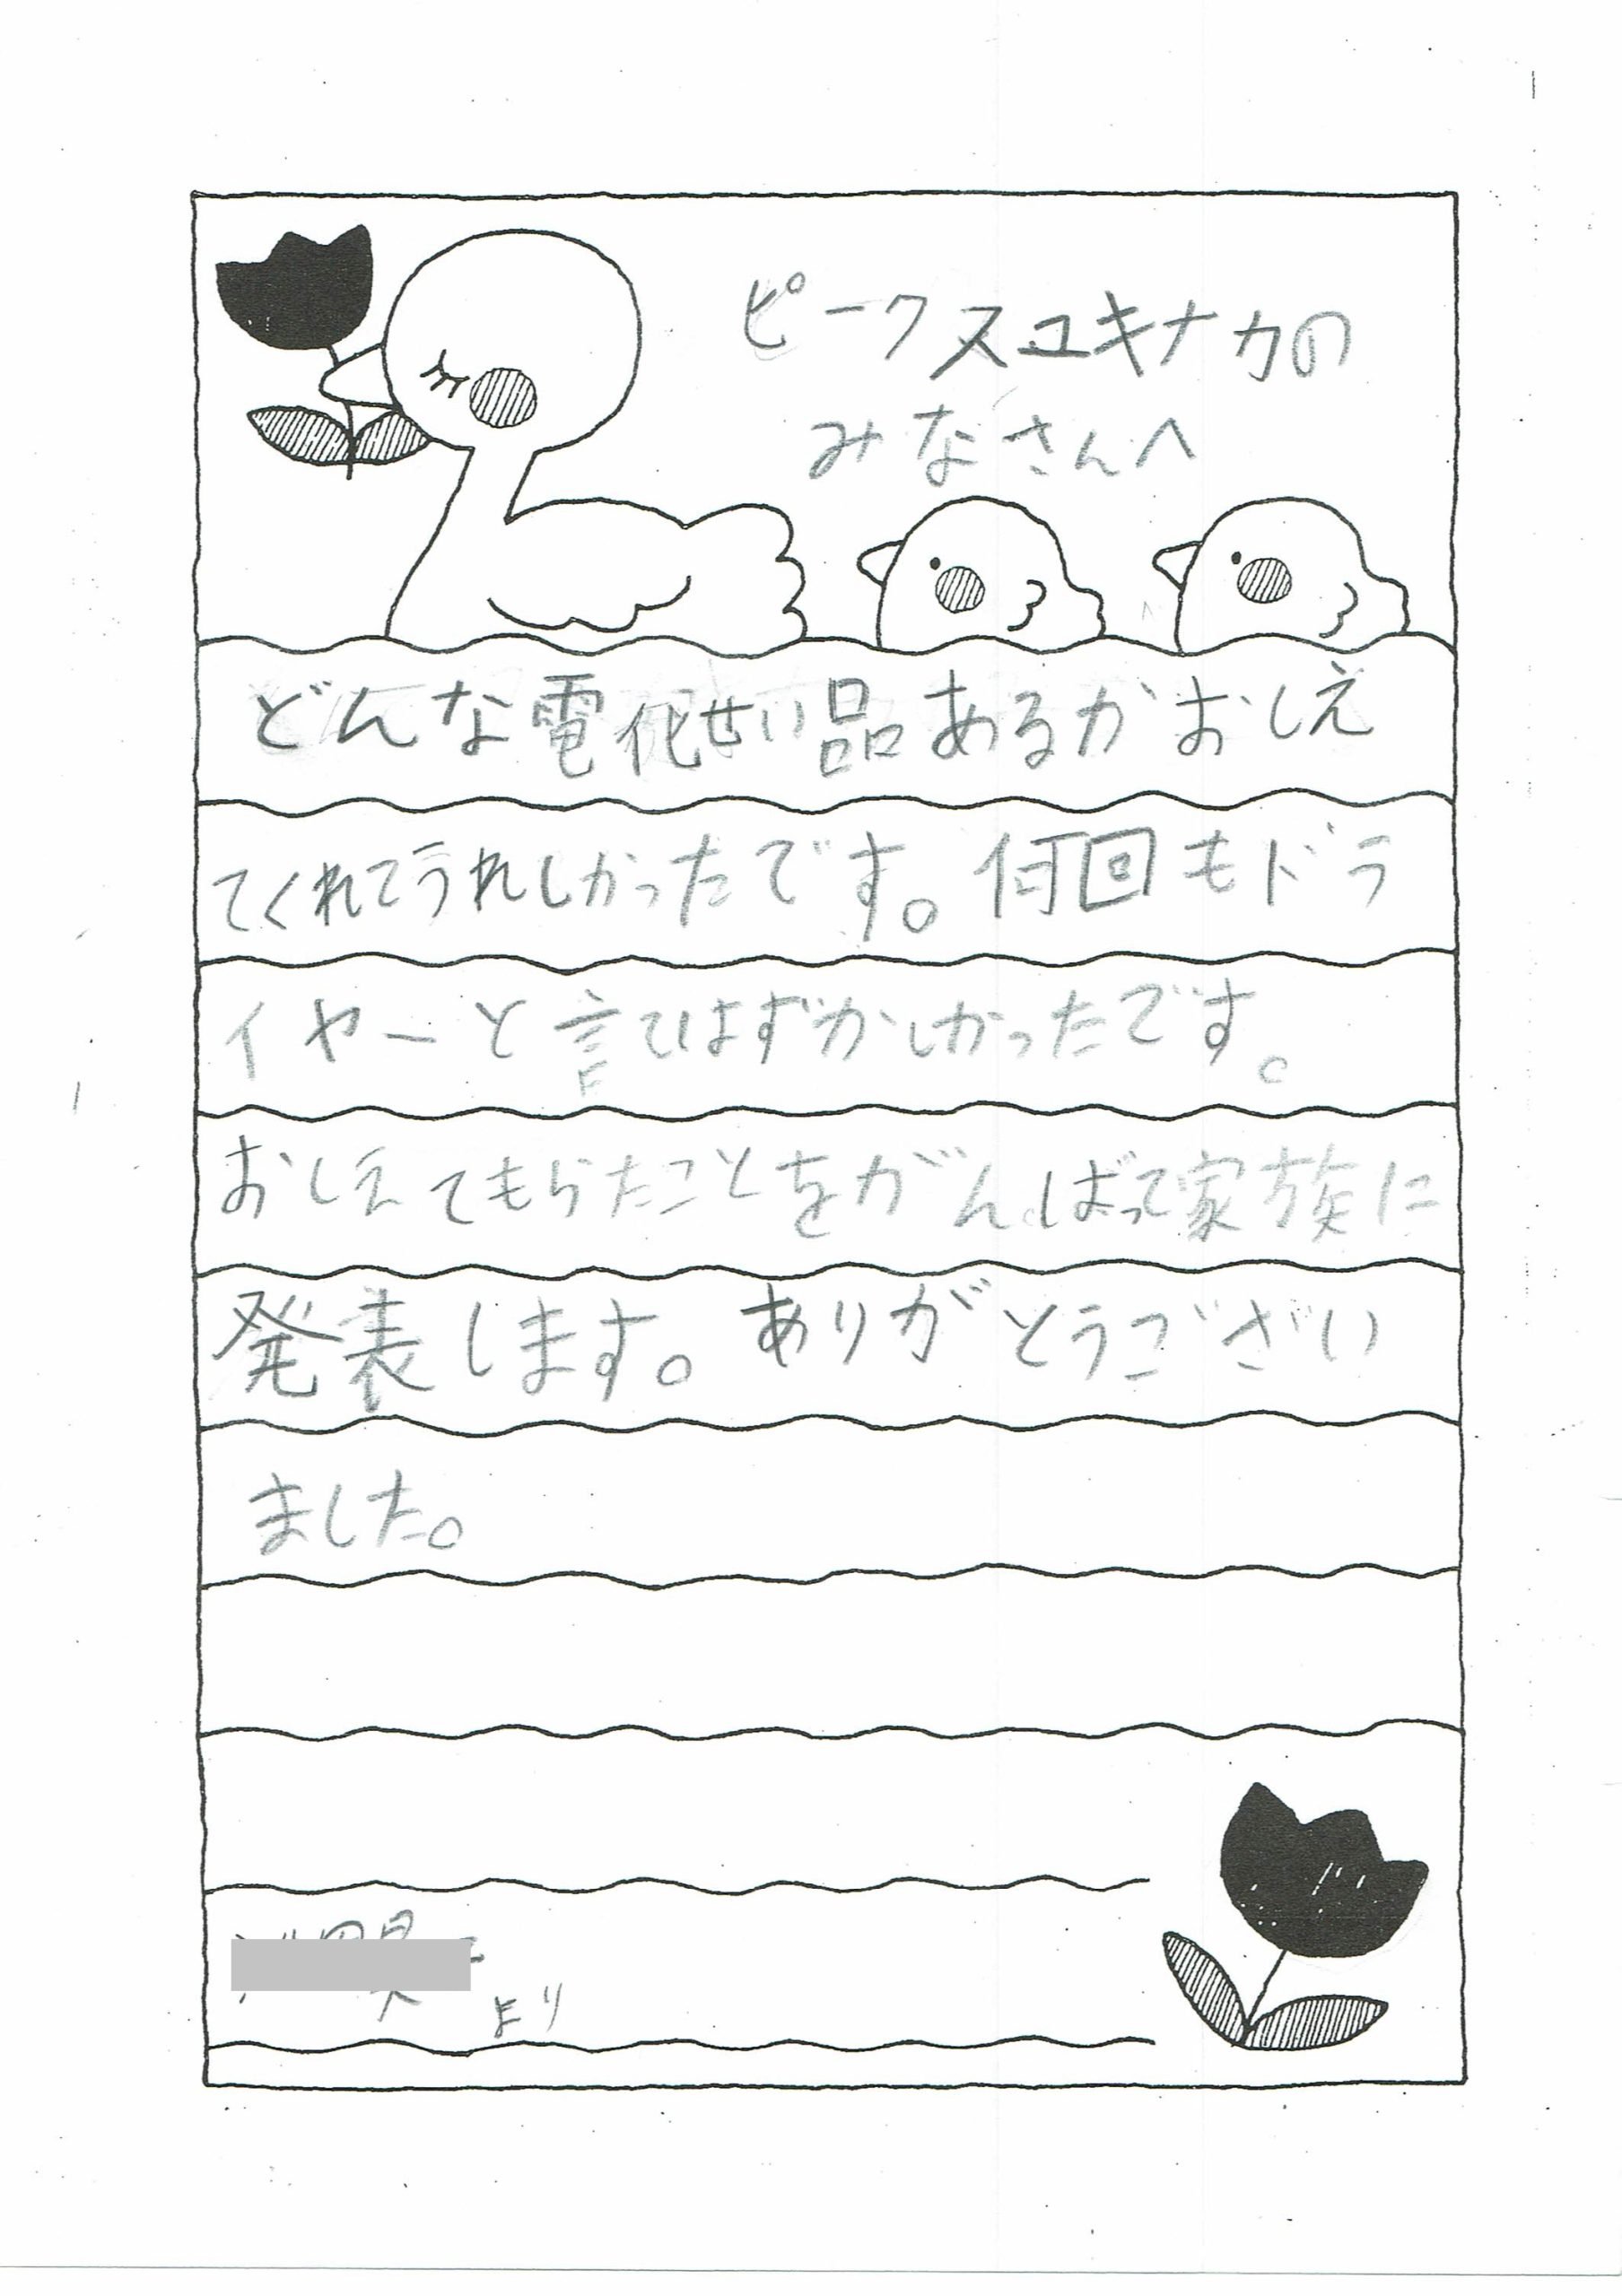 ピークスユキナカの
みなさんへ
どんな電化せい品あるかおしえ
てくれてうれしかったです。何回もドラ
イヤーと言てはずかしかったです。
おしえてもらたことをがんばって家族に
発表します。ありがとうござい
ました。
より